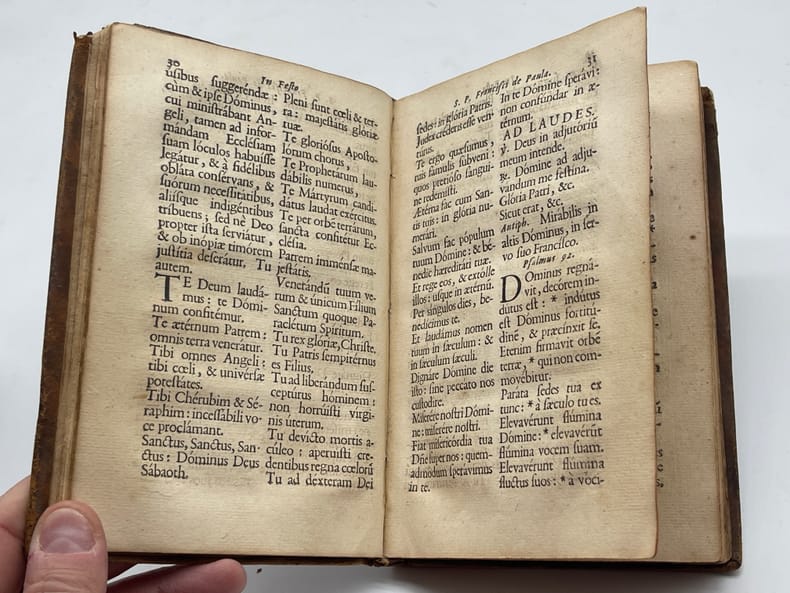 30
In Festo
usibus suggeréndæ :
cùm & ipse Dóminus,
cui ministrábant An-
geli, tamen ad infor-
mándam Ecclésiam
suam lóculos habuísse
legátur, & à fidélibus
obláta consérvans, &
suórum necessitátibus,
aliísque indigéntibus
tríbuens ; sed nè Deo
propter ista serviátur,
& ob inópiæ timórem
justítia deserátur. Tu
autem.
TE Deum laudá-
mus : te Dómi-
num confitémur.
Te ætérnum Patrem :
omnis terra venerátur.
Tibi omnes Angeli :
tibi cœli, & univérsæ
potestátes.
Tibi Chérubim & Sé-
raphim : incessábili vo-
ce proclámant.
Sanctus, Sanctus, San-
ctus : Dóminus Deus
Sábaoth.
Pleni sunt cœli & ter-
ra : majestátis glóriæ
tuæ.
Te gloriósus Aposto-
lórum chorus,
Te Prophetárum lau-
dábilis numerus,
Te Mártyrum candi-
dátus laudat exercitus.
Te per orbé terrárum,
sancta confitétur Ec-
clésia.
Patrem imménsæ ma-
jestátis.
Venerándũ tuum ve-
rum & únicum Fílium
Sanctum quoque Pa-
raclétum Spíritum.
Tu rex glóriæ, Christe.
Tu Patris sempitérnus
es Fílius.
Tu ad liberándum sus-
ceptúrus hóminem :
non horruísti vírgi-
nis úterum.
Tu devícto mortis a-
cúleo : aperuísti cre-
déntibus regna cœlorũ
Tu ad déxteram Dei
S. P. Francisci de Paula.
31
sedes: in glória Patris.
Judex créderis esse ven-
túrus.
Te ergo quæsumus,
tuis fámulis súbveni :
quos pretióso sángui-
ne redemísti.
Ætérna fac cum San-
ctis tuis : in glória nu-
merári.
Salvum fac pópulum
tuum Dómine : & bé-
nedic hæreditáti tuæ.
Et rege eos, & extólle
illos : usque in ætérnũ.
Per síngulos dies, be-
nedícimus te.
Et laudámus nomen
tuum in sæculum : &
in sæculum sæculi.
Dignáre Dómine die
isto : sine peccáto nos
custodíre.
Miserére nostri Dómi-
ne : miserére nostri.
Fiat misericórdia tua
Dñe super nos : quem-
admodum sperávimus
in te.
In te Dómine sperávi :
non confúndar in æ-
térnum.
AD LAUDES.
℣. Deus in adjutóriũ
meum inténde.
℟. Dómine ad adju-
vándum me festína.
Glória Patri, &c.
Sicut erat, &c.
Antiph. Mirábilis in
altis Dóminus, in ser-
vo suo Francísco.
Psalmus 92.
DOminus regná-
vit, decórem in-
dútus est : * indútus
est Dóminus fortitú-
dinē, & præcínxit se.
Etenim firmávit orbē
terræ, * qui non com-
movébitur.
Paráta sedes tua ex
tunc : * à sæculo tu es.
Elevavérunt flúmina
Dómine : * elevavérũt
flúmina vocem suam.
Elevavérunt flúmina
fluctus suos : * à vóci-